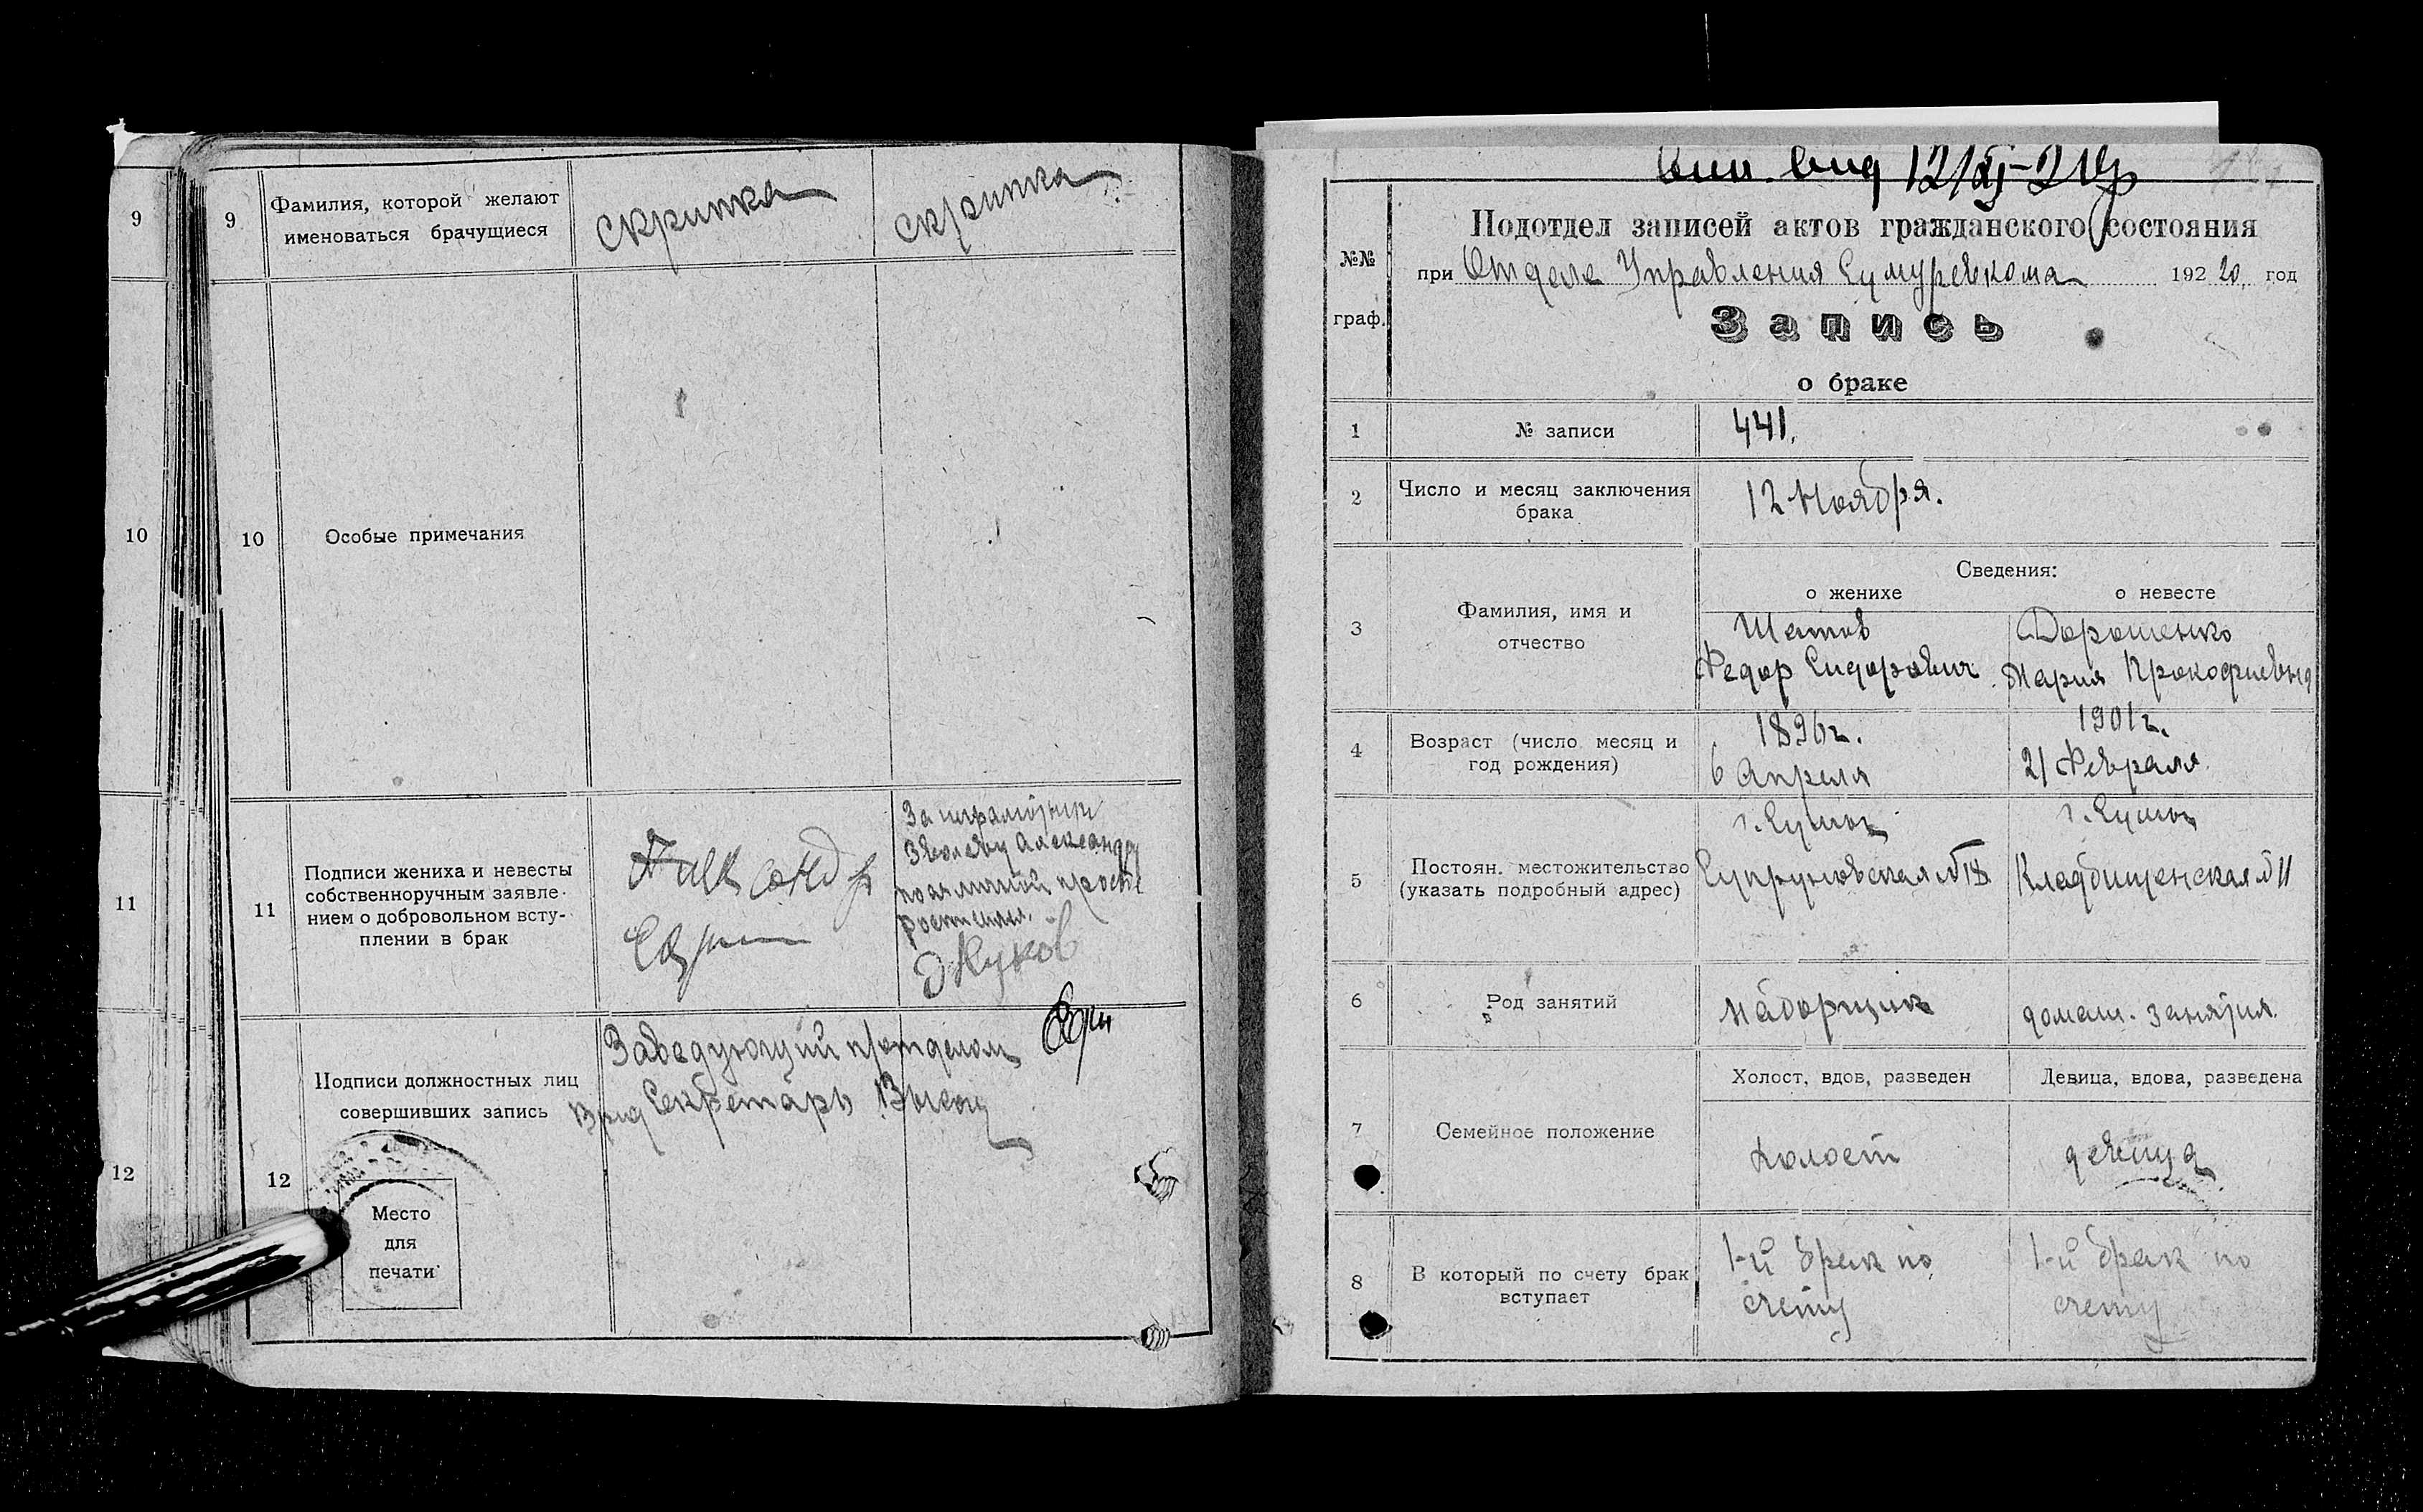 9
9
Фамилия, которой желают
именоваться брачущиеся
Скрипка
Скрипка
10
10
Особые примечания
11
11
Подписи жениха и невесты
собственноручным заявле-
нием о добровольном всту-
плении в брак
Александр
За
Александру
Жуков
12
12
Подписи должностных лиц
совершивших запись
Заведующий
Врид Секретарь
Место
для
печати
вид 12/XI-21г
№№
граф.
Подотдел записей актов гражданского состояния
при Отделе Управления Сумуревкома 192 20 год
Запись
о браке
1
№ записи
441.
2
Число и месяц заключения
брака
12 Ноября.
Сведения:
о женихе
о невесте
3
Фамилия, имя и
отчество
Шатов
Федор Сидорович
Дорошенко
Мария Прокофиевна
4
Возраст (число месяц и
год рождения)
1896г.
6 Апреля
1901г.
21 Февраля
5
Постоян. местожительство
(указать подробный адрес)
г. Сумы
Супруновская № 18
г. Сумы
Кладбищенская № 11
6
Род занятий
наборщик
домаш. занятия
7
Семейное положение
Холост, вдов, разведен
Девица, вдова, разведена
холост
девица
8
В который по счету брак
вступает
1-й брак по
счету
1-й брак по
счету